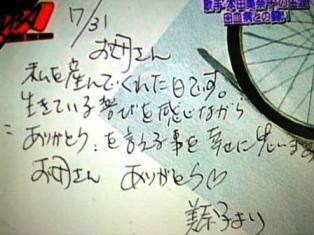 歌手・本田美奈子の生涯
白血病との闘い
7/31
お母さん
私を産んでくれた日です。
生きている喜びを感じながら
ありがとう を言える事を幸せに思います
お母さん ありがとう♡
美奈子より